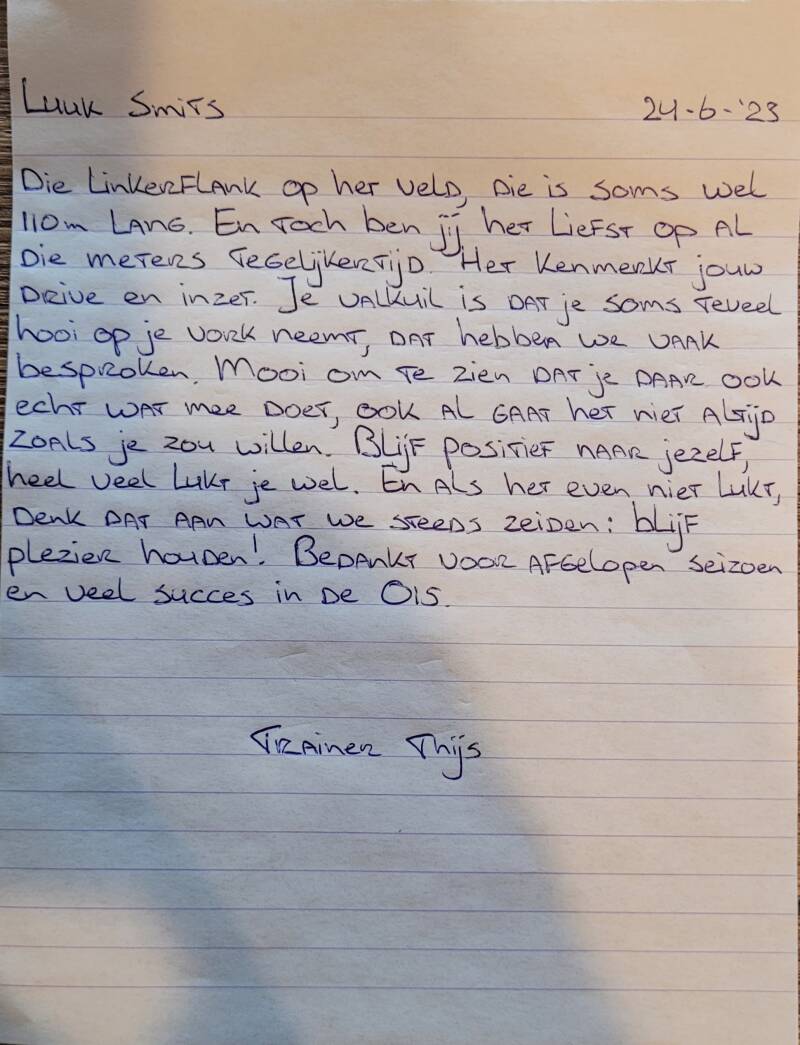 Luuk Smits 24-6-'23
Die linkerflank op het veld, die is soms wel
110m lang. En toch ben jij het liefst op al
die meters tegelijkertijd. Het kenmerkt jouw
drive en inzet. Je valkuil is dat je soms teveel
hooi op je vork neemt, dat hebben we vaak
besproken. Mooi om te zien dat je daar ook
echt wat mee doet, ook al gaat het niet altijd
zoals je zou willen. Blijf positief naar jezelf,
heel veel lukt je wel. En als het even niet lukt,
denk dat aan wat we steeds zeiden: blijf
plezier houden! Bedankt voor afgelopen seizoen
en veel succes in de O15.
Trainer Thijs